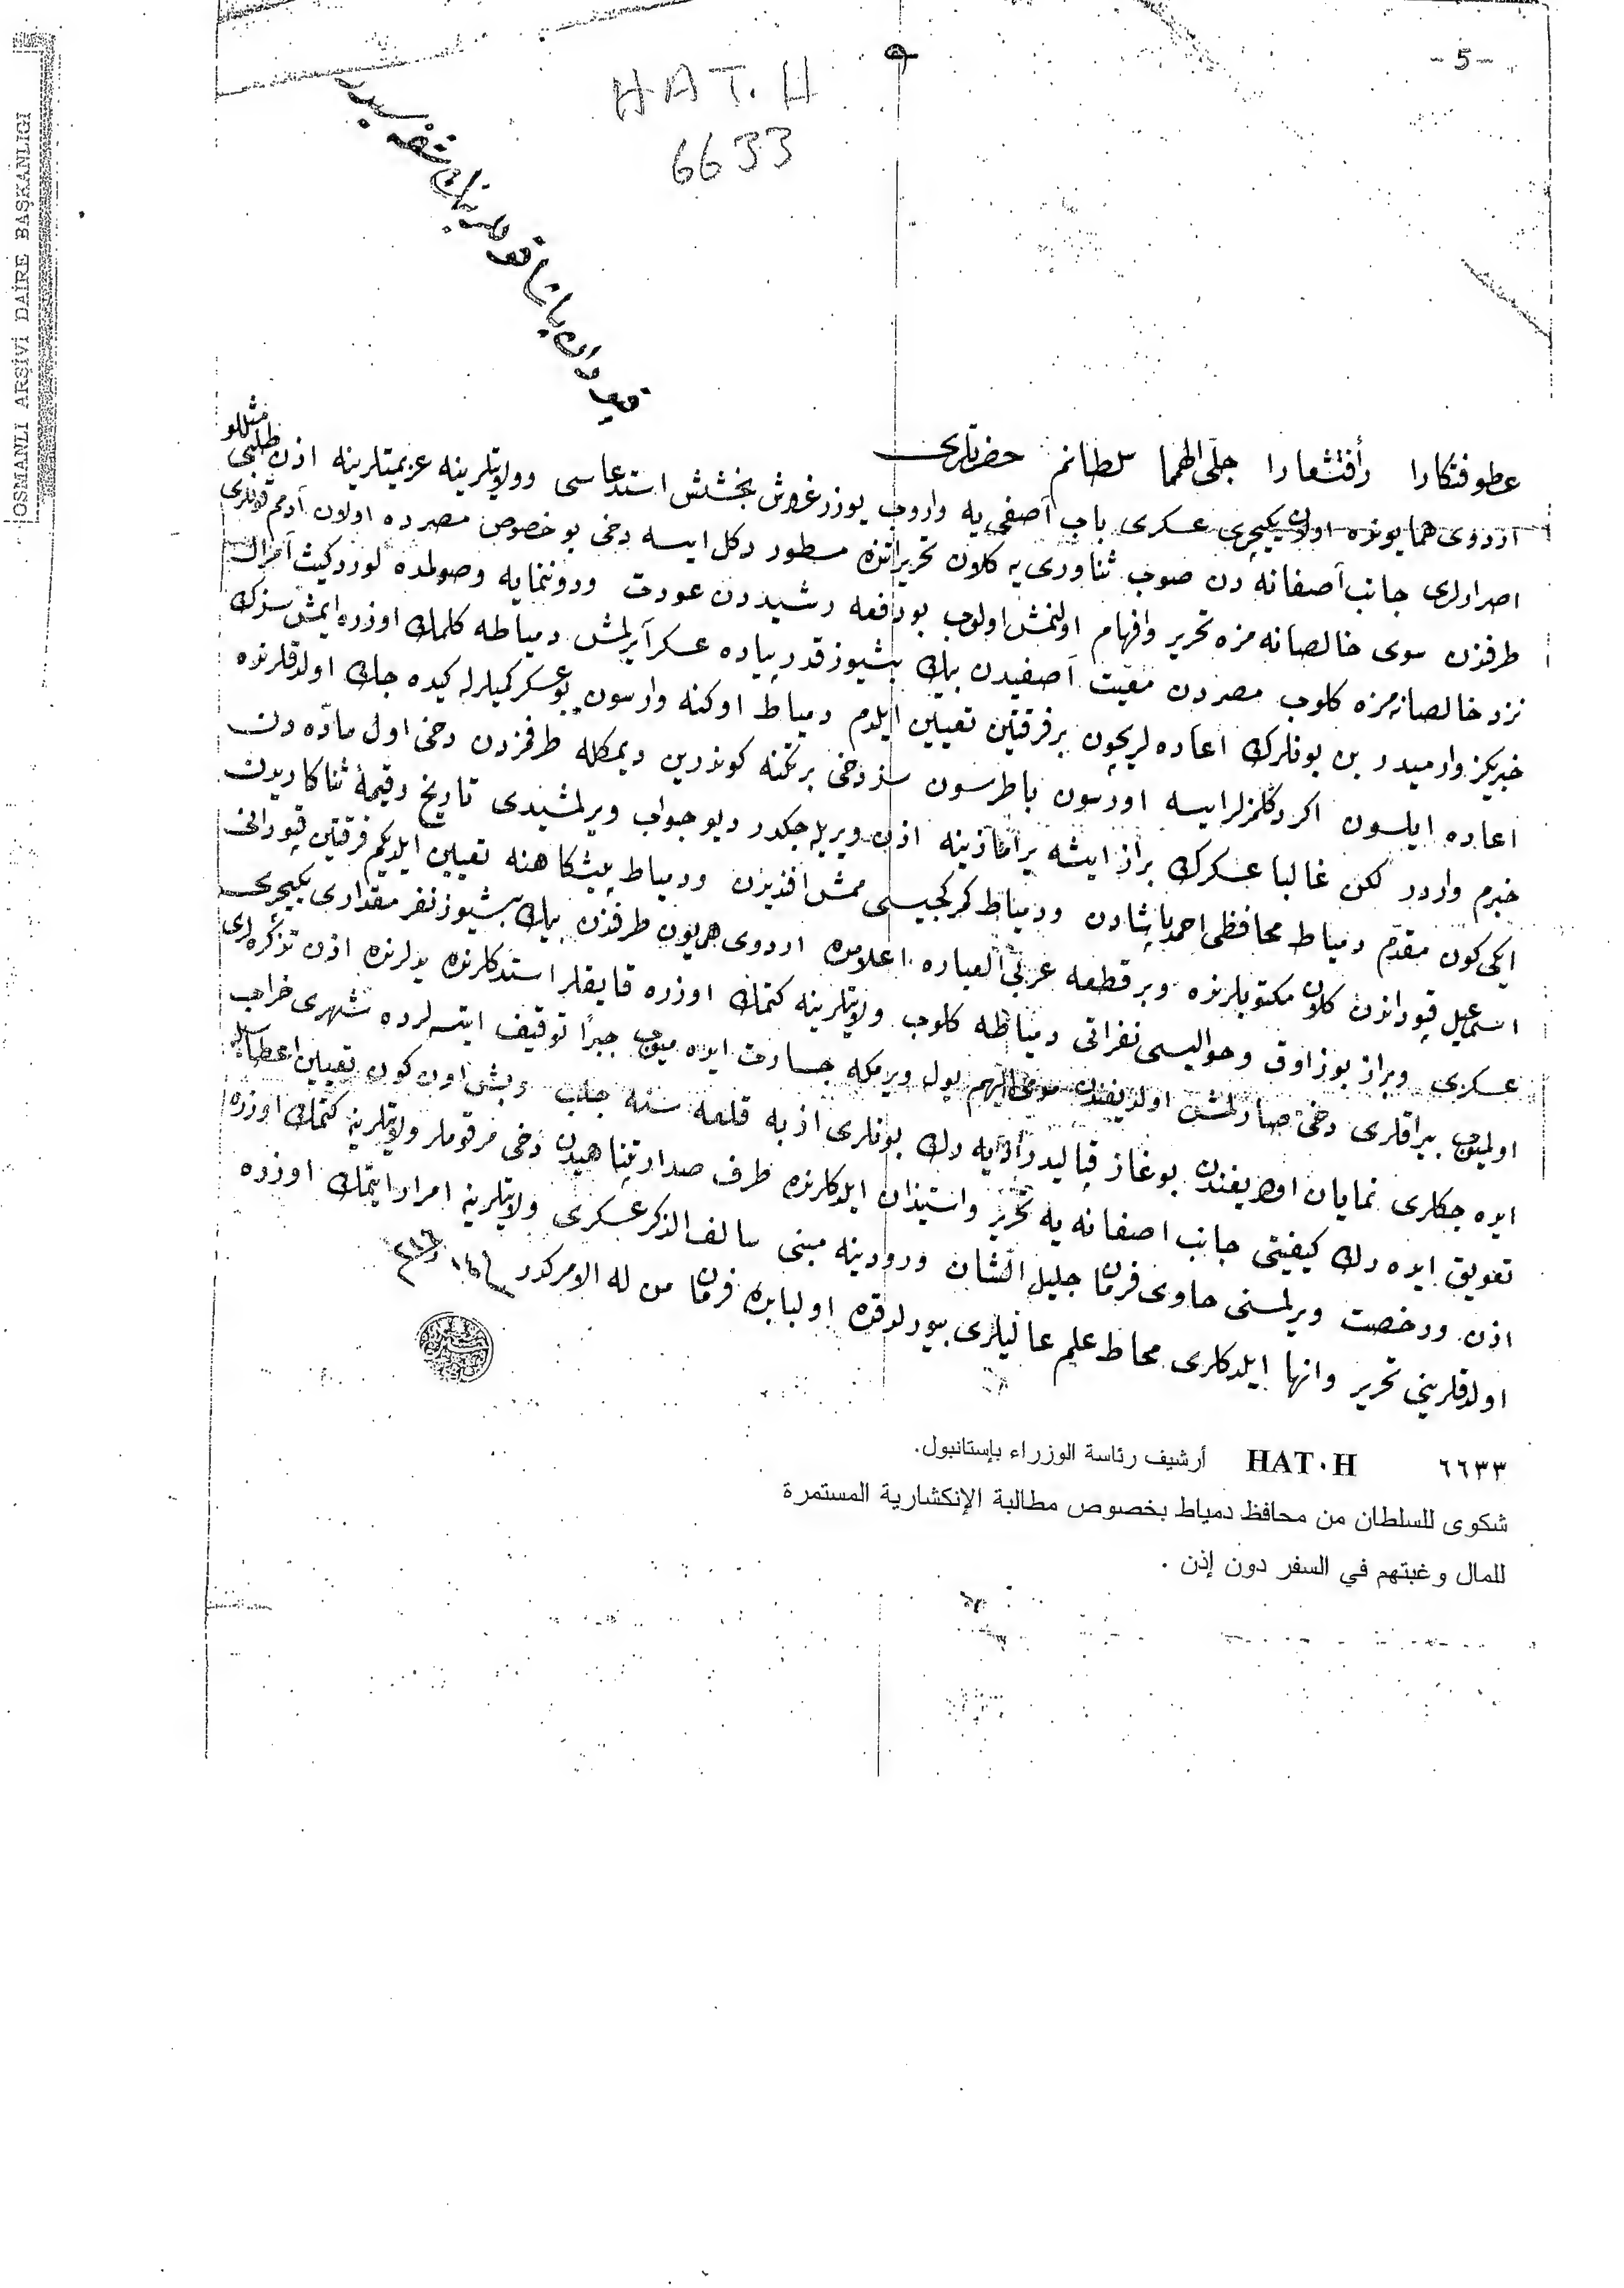 OSMANLI ARŞİVİ DAİRE BAŞKANLIGI
- 5 -
HAT. H
6633
قپودان پاشا
عطوفتكارا رأفتشعارا جلى الهمما سلطانم حضرتلرى
اردوى همايونده اولان يكيچرى عسكرى باب آصفى يه واروب يوزر غروش بخشش استدعاسى وولايتلرينه عزيمتلرينه اذن طلبى مثللو
اصرارلرى جانب آصفانه دن صوب ثناورى يه كلان تحريراتده مسطور دكل ايسه دخى بو خصوص مصرده اولان آدمم قولارى
طرفندن سوى خالصانه مزه تحرير وافهام اولنمش اولوب بو دفعه رشيددن عودت ودوننمايه وصولمده لورد كيث آمرال
نزد خالصانه مزه كلوب مصردن معيت آصفيدن بيك بشيوز قدر پياده عسكر آيرلمش دمياطه كلمك اوزره ايمش سزك
خبريكز وارميدر بن بونلرك اعاده لريچون بر فرقتين تعيين ايلدم دمياط اوكنه وارسون بو عسكر كميلرله كيده جك اولدقلرنده
اعاده ايلسون اكر دكلمزلر ايسه اورسون باطرسون سز دخى بر تكنه كوندرين ديمكله طرفمزدن دخى اول ماده دن
خبرم واردر لكن غالبا عسكرك براز ايشه يرامازينه اذن ويريله جكدر ديو جواب ويرلمشيدى تاريخ رقيمۀ ثناكاريدن
ايكى كون مقدم دمياط محافظى احمد پاشادن ودمياط كمركجيسى ممش افنديدن ودمياط پيشكاهنه تعيين ايلديكم فرقتين قپودانى
اسمعيل قپوداندن كلان مكتوبلرنده وبر قطعه عربى العباره اعلامده اردوى همايون طرفندن بيك بشيوز نفر مقدارى يكيچرى
عسكرى وبراز بوزاوق وحواليسى نفراتى دمياطه كلوب ولايتلرينه كتمك اوزره قايقلر استدكلرنده يدلرنده اذن تذكره لرى
اولميوب بيراقلرى دخى صارلمش اولديغندن مومى اليهم يول ويرمكه جسارت ايده ميوب جبرًا توقيف ايتسه لرده شهرى خراب
ايده جكلرى نمايان اولديغندن بوغاز قپاليدر ديه رك بونلرى ازبه قلعه سنه جلب وبش اون كون تعيين اعطاسيله
تعويق ايده رك كيفيتى جانب اصفانه يه تحرير واستيذان ايلدكلرنده طرف صدارتپناهيدن دخى مرقوملر ولايتلرينه كتمك اوزره
اذن ورخصت ويرلمسنى حاوى فرمان جليل الشان ورودينه مبنى سالف الذكر عسكرى ولايتلرينه امرار ايتمك اوزره
اولدقلرينى تحرير وانها ايلدكلرى محاط علم عاليلرى بيورلدقده اولبابده فرمان من له الامركدر
٦٦٣٣ HAT·H أرشيف رئاسة الوزراء بإستانبول.
شكوى للسلطان من محافظ دمياط بخصوص مطالبة الإنكشارية المستمرة
للمال وغبتهم في السفر دون إذن .